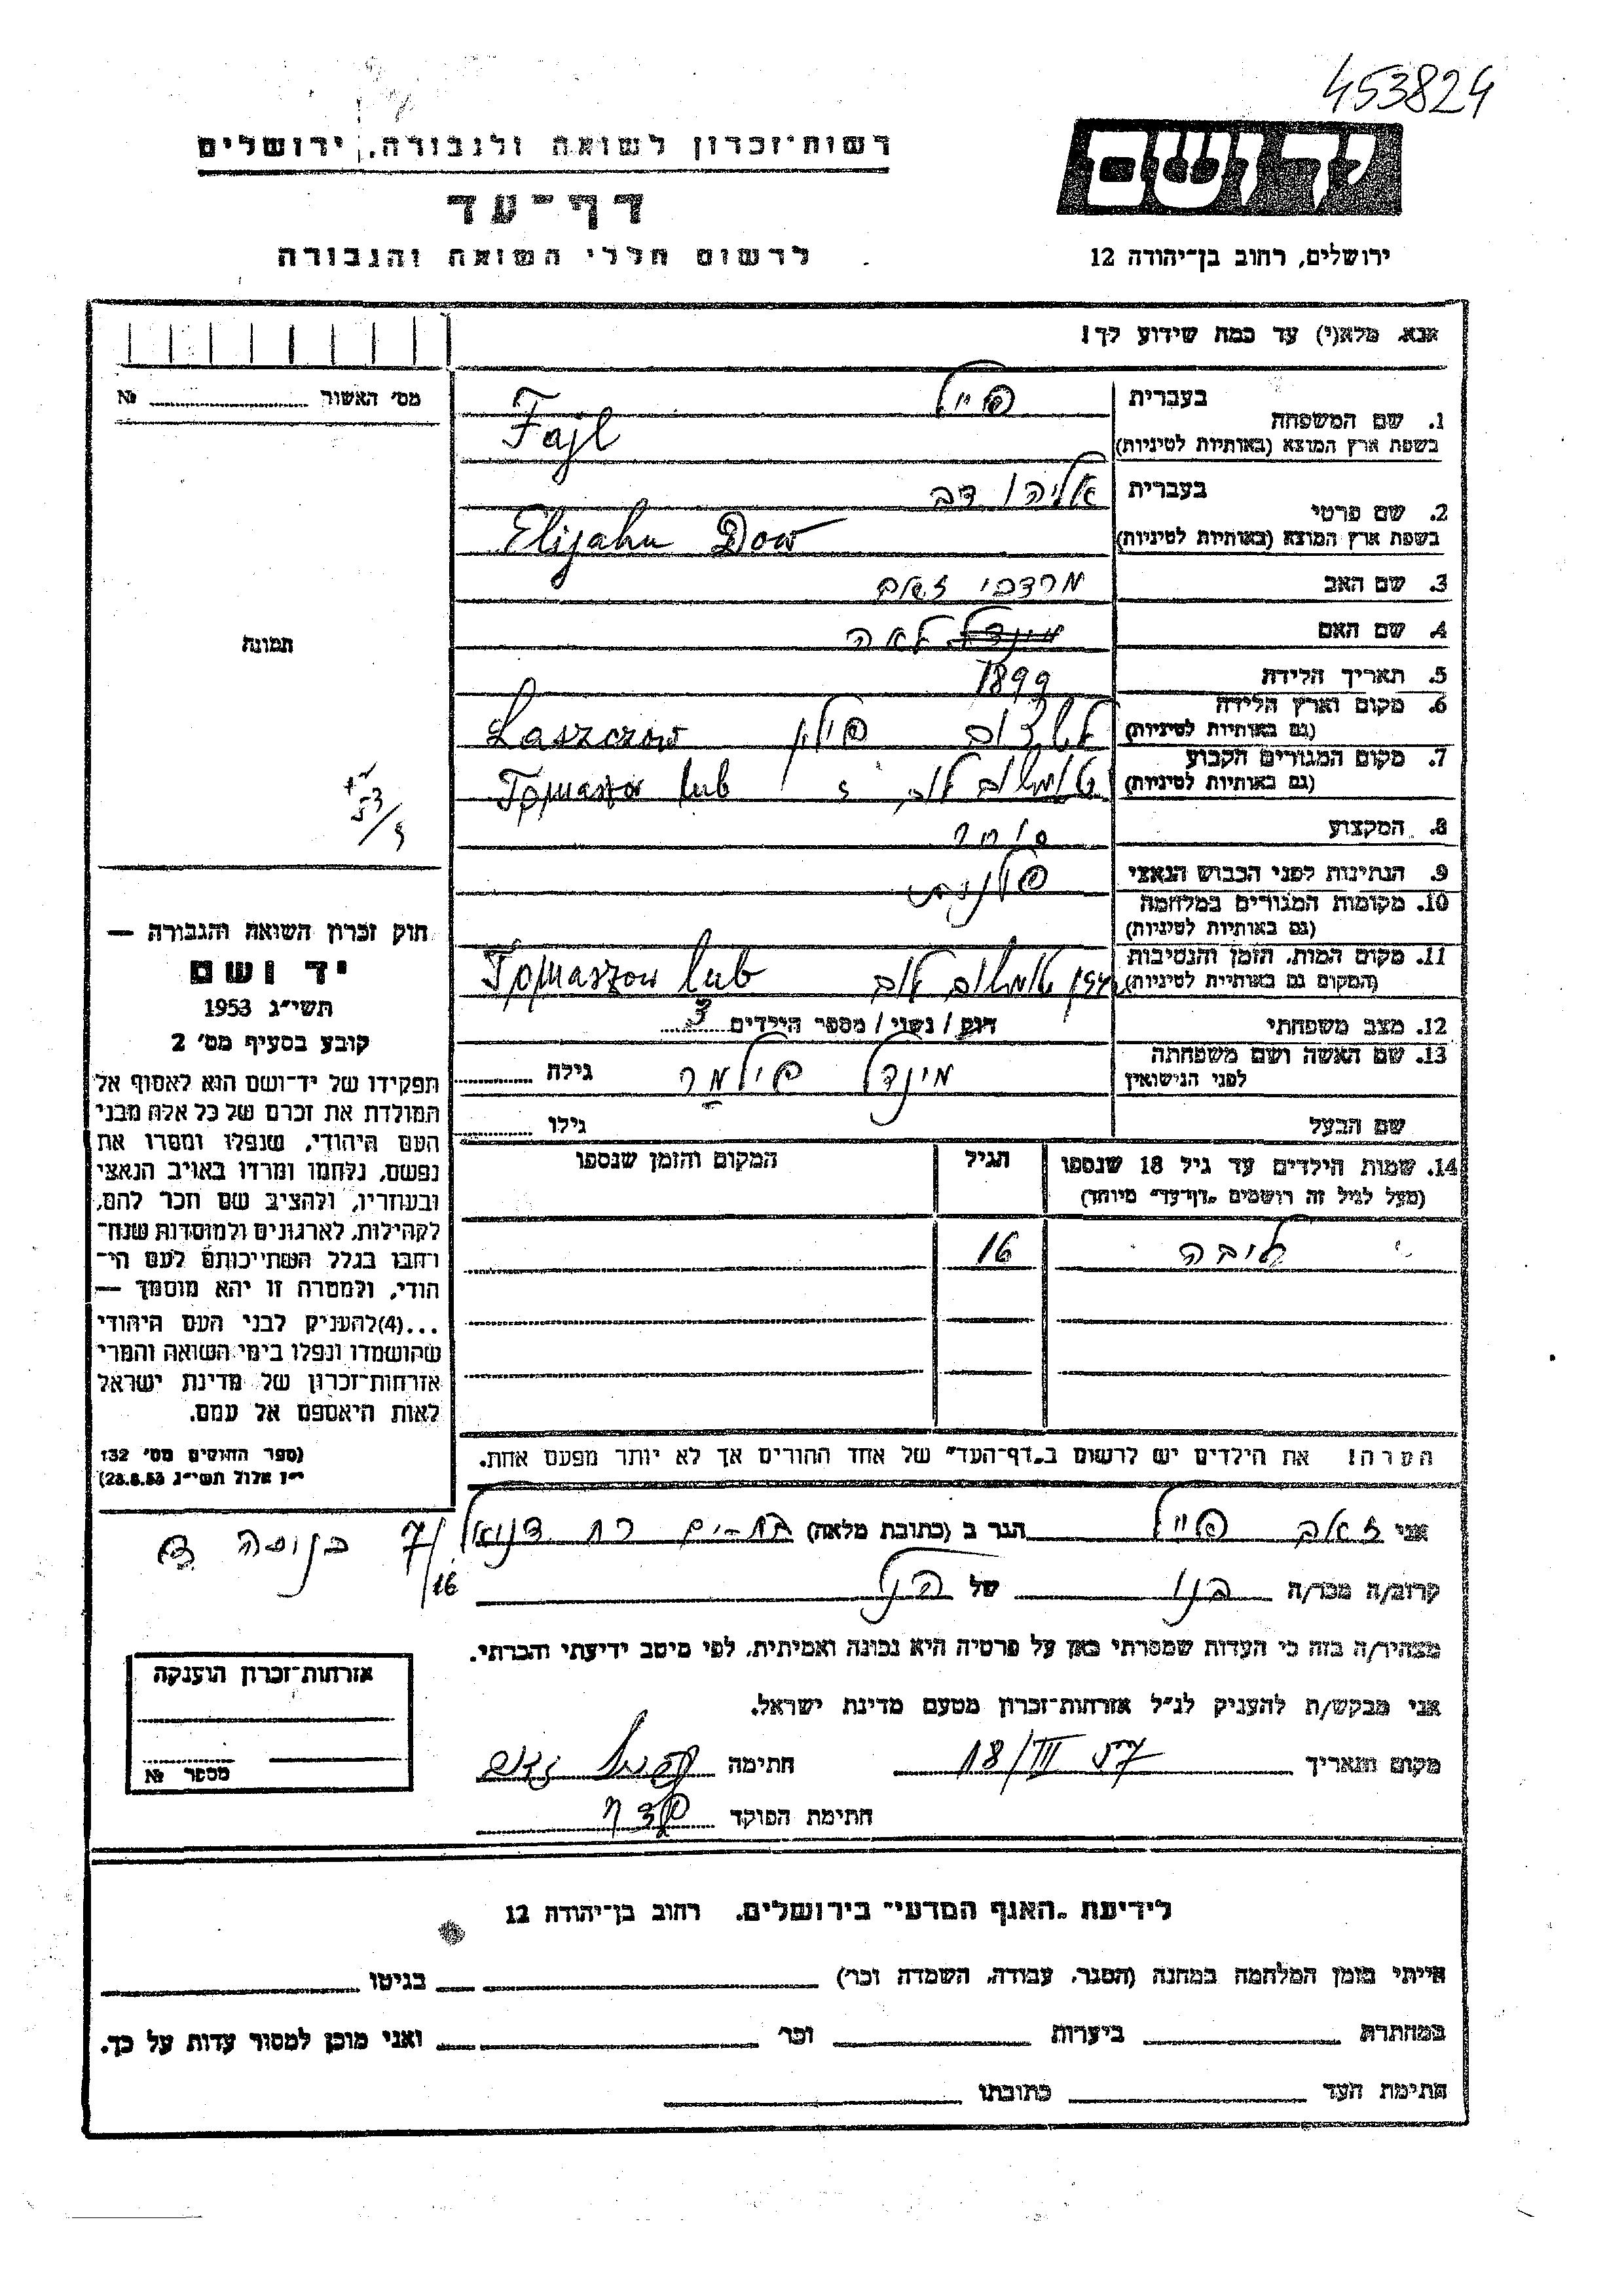 453824
רשות־זכרון לשואה ולגבורה, ירושלים
יד ושם
דף־עד
לרשום חללי השואה והגבורה
ירושלים, רחוב בן־יהודה 12
אנא, מלא(י) עד כמה שידוע לך!
מס' האשור № 
1. שם המשפחה בעברית פייל
בשפת ארץ המוצא (באותיות לטיניות) Fajl
2. שם פרטי בעברית אליהו דב
בשפת ארץ המוצא (באותיות לטיניות) Elijahu Dow
3. שם האב מרדכי זאב
4. שם האם לאה
5. תאריך הלידה 1899
6. מקום וארץ הלידה (גם באותיות לטיניות) פולין Laszczow
7. מקום המגורים הקבוע (גם באותיות לטיניות) טומשוב לוב Tomaszow lub
8. המקצוע סוחר
9. הנתינות לפני הכבוש הנאצי פולנית
10. מקומות המגורים במלחמה (גם באותיות לטיניות)
11. מקום המות, הזמן והנסיבות (המקום גם באותיות לטיניות) טומשוב לוב Tomaszow lub
12. מצב משפחתי רווק / נשוי / מספר הילדים 3
13. שם האשה ושם משפחתה לפני הנישואין מינדל גילה
שם הבעל גילו
14. שמות הילדים עד גיל 18 שנספו הגיל המקום והזמן שנספו
(מעל לגיל זה רושמים „דף־עד" מיוחד)
ליבה 16
הערה! את הילדים יש לרשום ב„דף־העד" של אחד ההורים אך לא יותר מפעם אחת.
תמונה
חוק זכרון השואה והגבורה —
יד ושם
תשי״ג 1953
קובע בסעיף מס' 2
תפקידו של יד־ושם הוא לאסוף אל
המולדת את זכרם של כל אלה מבני
העם היהודי, שנפלו ומסרו את
נפשם, נלחמו ומרדו באויב הנאצי
ובעוזריו, ולהציב שם וזכר להם,
לקהילות, לארגונים ולמוסדות שנח־
רבו בגלל השתייכותם לעם הי־
הודי, ולמטרה זו יהא מוסמך —
...(4)להעניק לבני העם היהודי
שהושמדו ונפלו בימי השואה והמרי
אזרחות־זכרון של מדינת ישראל
לאות היאספם אל עמם.
(ספר החוקים מס' 132
י״ז אלול תשי״ג 28.8.53)
אני זאב פייל הגר ב (כתובת מלאה) בת-ים רח דניאל 7/16
קרוב/ה מכר/ה בנו של הנ״ל
מצהיר/ה בזה כי העדות שמסרתי כאן על פרטיה היא נכונה ואמיתית, לפי מיטב ידיעתי והכרתי.
אני מבקש/ת להעניק לנ״ל אזרחות־זכרון מטעם מדינת ישראל.
מקום ותאריך 18/III 57 חתימה זאב
חתימת הפוקד
אזרחות־זכרון הוענקה
מספר №
לידיעת „האגף המדעי" בירושלים, רחוב בן־יהודה 12
הייתי בזמן המלחמה במחנה (הסגר, עבודה, השמדה וכו') בגיטו
במחתרת ביערות וכו' ואני מוכן למסור עדות על כך.
חתימת העד כתובתו